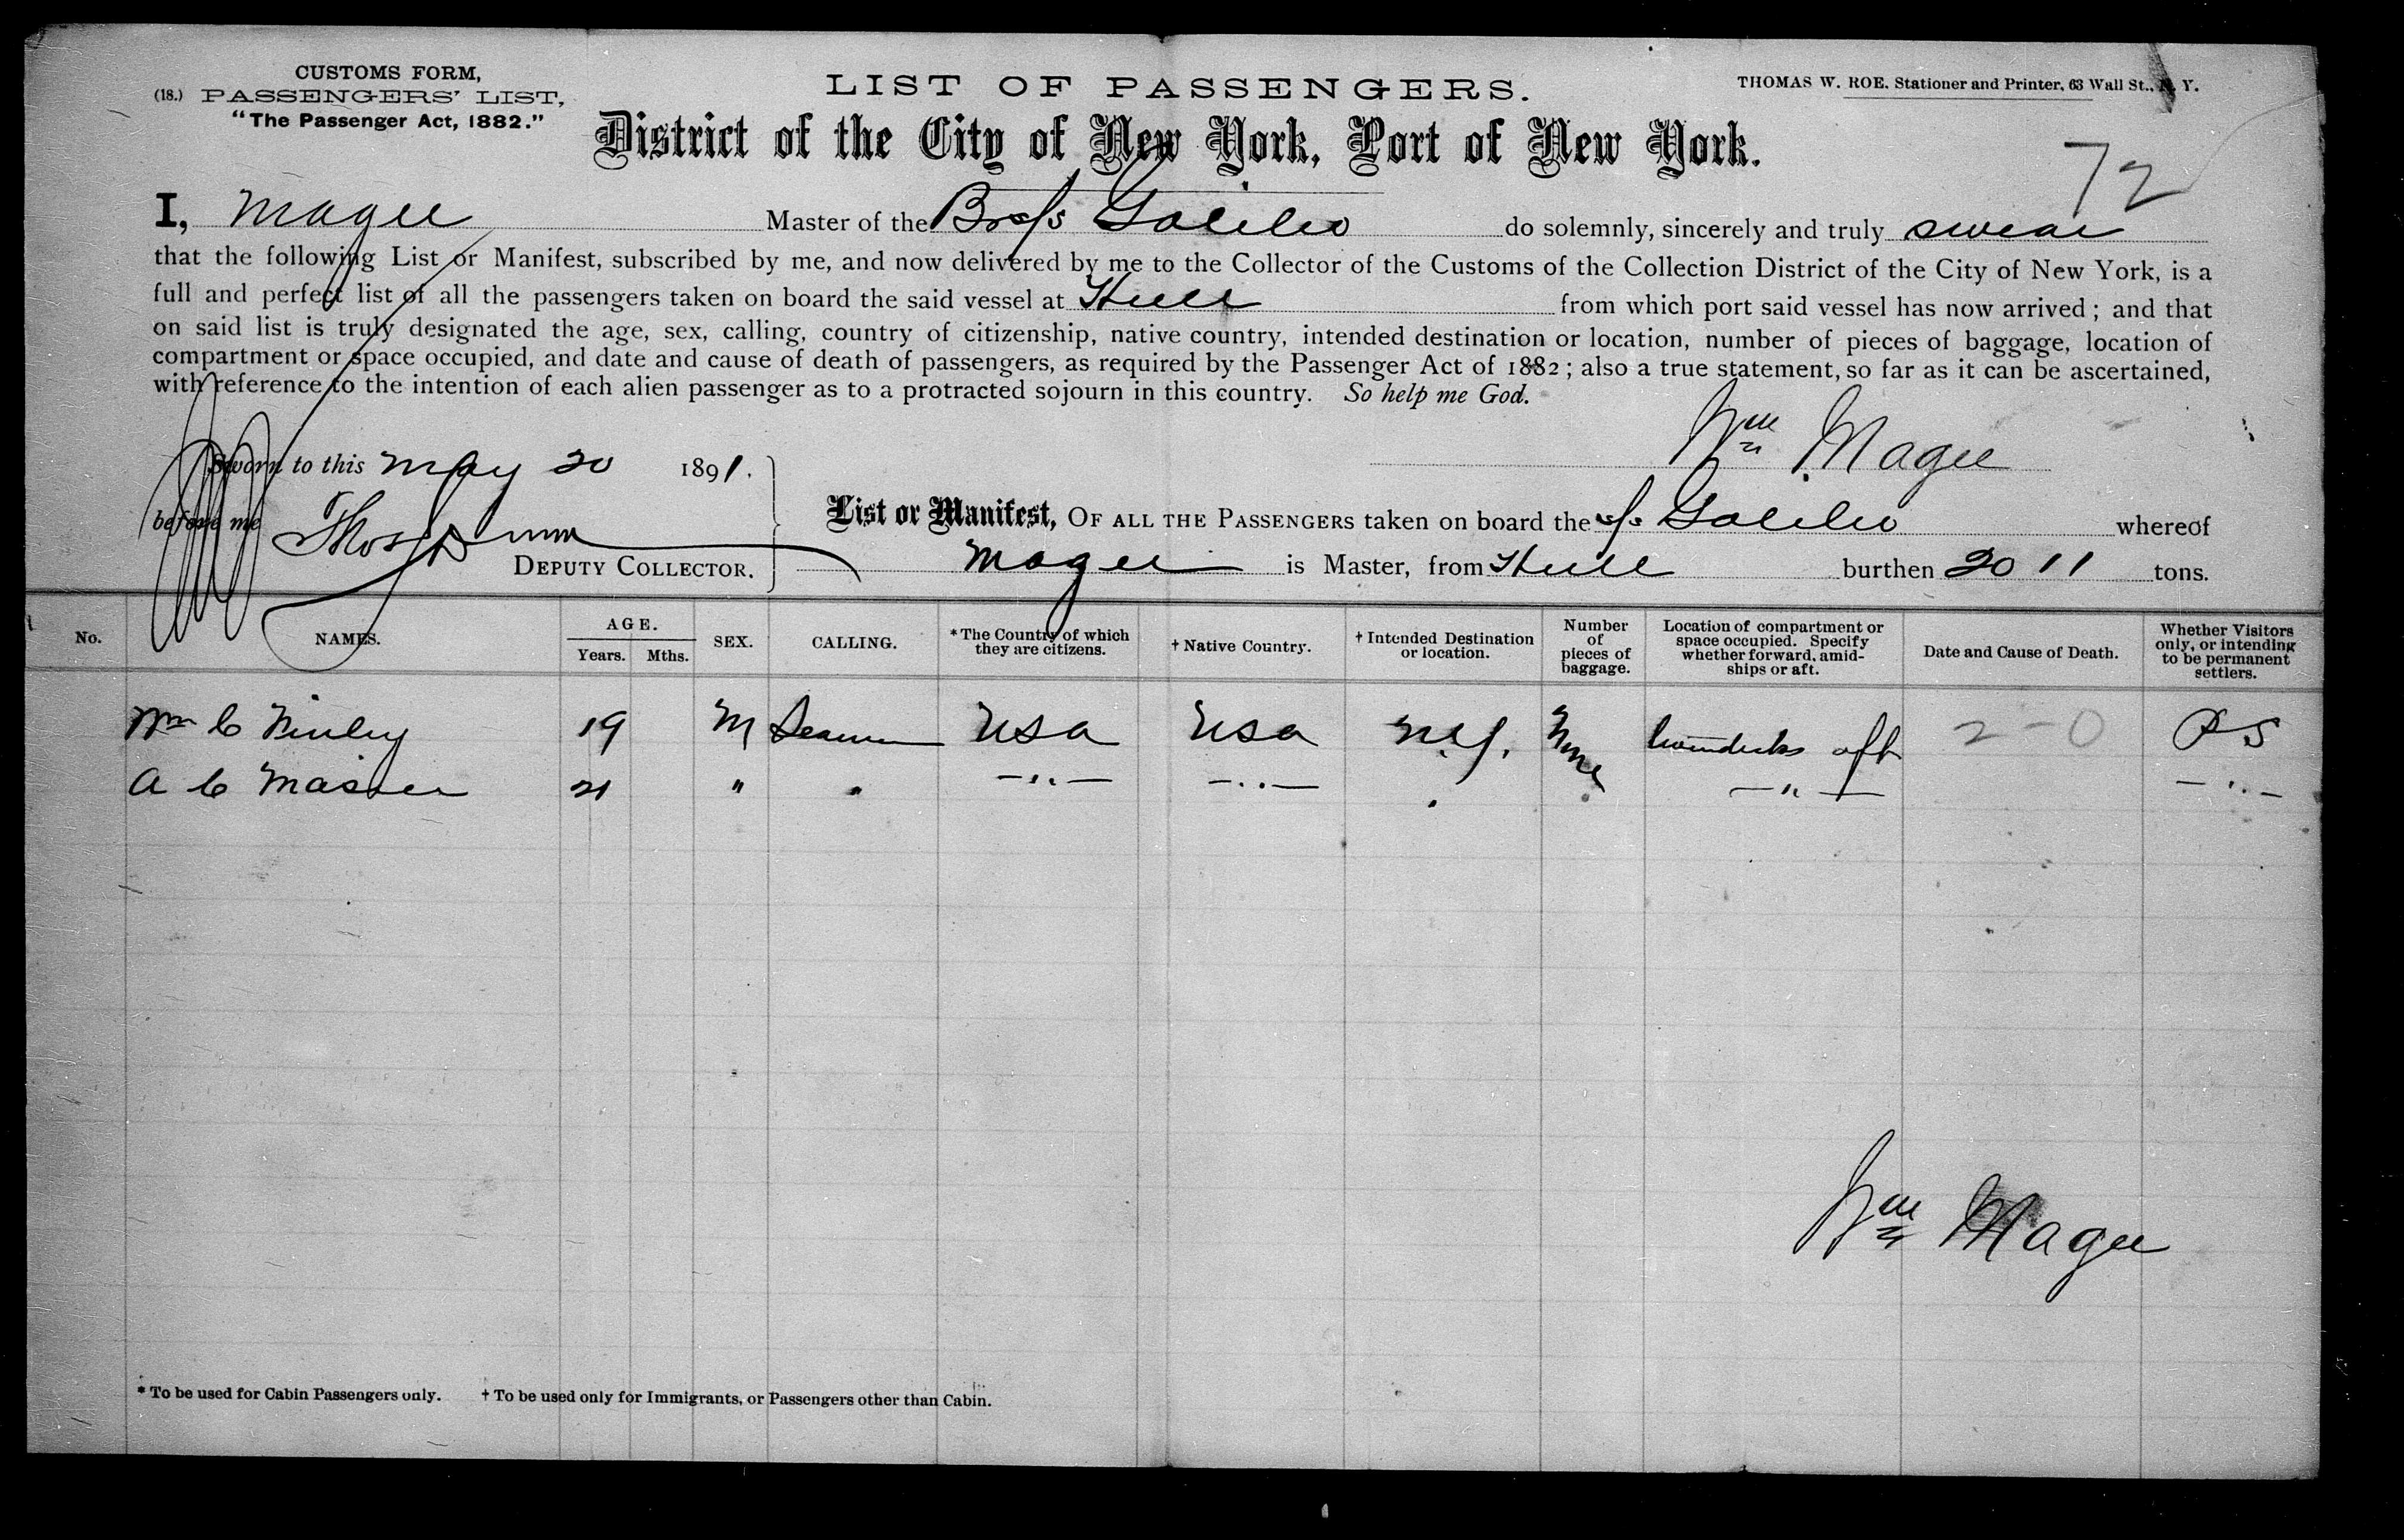 CUSTOMS FORM,
(18.) PASSENGERS' LIST,
"The Passenger Act, 1882."
LIST OF PASSENGERS.
THOMAS W. ROE. Stationer and Printer, 63 Wall St., N. Y.
District of the City of New York, Port of New York.
72
I, Magee Master of the Br s/s Galileo do solemnly, sincerely and truly swear
that the following List or Manifest, subscribed by me, and now delivered by me to the Collector of the Customs of the Collection District of the City of New York, is a
full and perfect list of all the passengers taken on board the said vessel at Hull from which port said vessel has now arrived; and that
on said list is truly designated the age, sex, calling, country of citizenship, native country, intended destination or location, number of pieces of baggage, location of
compartment or space occupied, and date and cause of death of passengers, as required by the Passenger Act of 1882; also a true statement, so far as it can be ascertained,
with reference to the intention of each alien passenger as to a protracted sojourn in this country. So help me God.
Wm Magee
Sworn to this May 20 1891.
before me Thos Dunn
DEPUTY COLLECTOR.
List or Manifest, OF ALL THE PASSENGERS taken on board the s/s Galileo whereof
Magee is Master, from Hull burthen 2011 tons.
No. NAMES. AGE. Years. Mths. SEX. CALLING. *The Country of which they are citizens. † Native Country. † Intended Destination or location. Number of pieces of baggage. Location of compartment or space occupied. Specify whether forward, amidships or aft. Date and Cause of Death. Whether Visitors only, or intending to be permanent settlers.
Wm C 19 M Seaman USA USA N.Y. None aft 2-0 PS
A C 21 " " —"— —"— " —"— —"—
Wm Magee
* To be used for Cabin Passengers only. † To be used only for Immigrants, or Passengers other than Cabin.